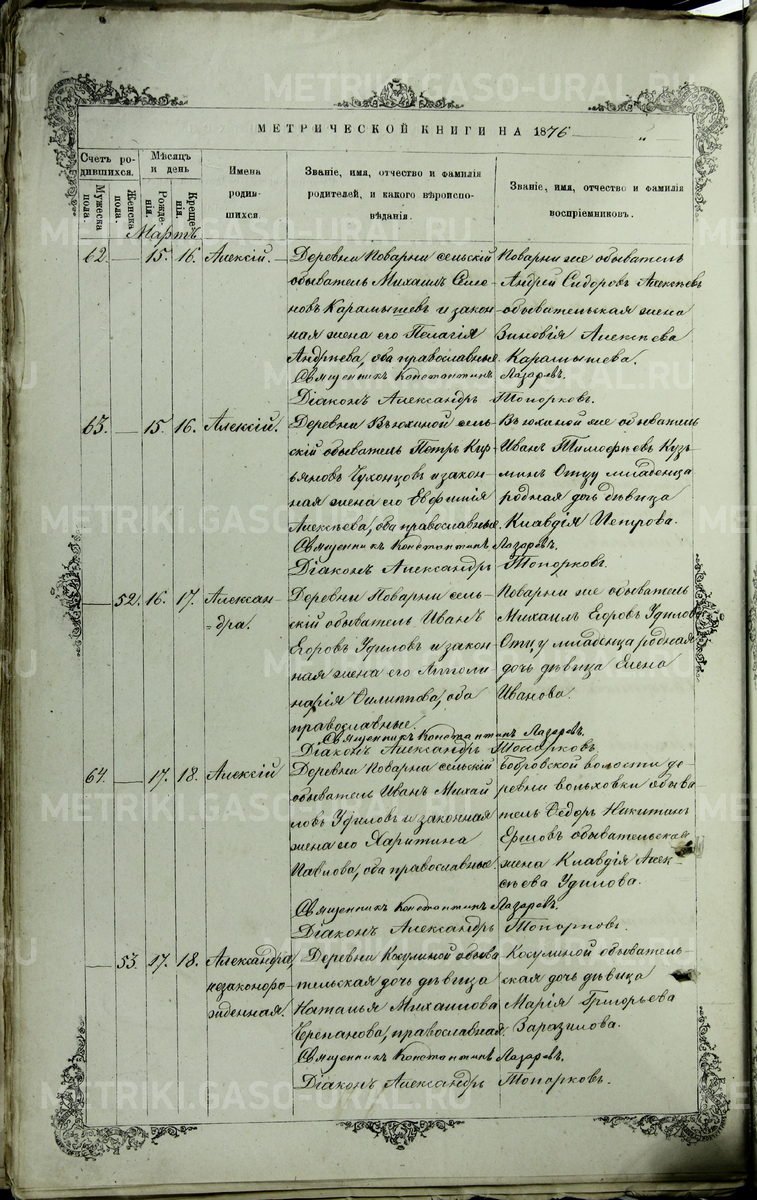 МЕТРИЧЕСКОЙ КНИГИ НА 1876
Счетъ родившихся.
Мужеска пола.
Женска пола.
Мѣсяцъ и день
Рожденія.
Крещенія.
Имена родившихся.
Званіе, имя, отчество и фамилія родителей, и какого вѣроисповѣданія.
Званіе, имя, отчество и фамилія воспріемниковъ.
Мартъ
62 — 15. 16. Алексій.
Деревни Поварни сельскій
обыватель Михаилъ Семе-
новъ Карамышевъ и закон-
ная жена его Пелагія
Андрѣева, оба православные.
Поварни же обыватель
Андрей Сидоровъ Алексѣевъ
обывательская жена
Зиновія Алексѣева
Карамышева.
Священникъ Константинъ Лазаревъ.
Діаконъ Александръ Топорковъ.
63. — 15. 16. Алексій.
Деревни Вьюхиной сель-
скій обыватель Петръ Кир-
ьяновъ Чухонцовъ и закон-
ная жена его Евфимія
Алексѣева, оба православные.
Вьюхиной же обыватель
Иванъ Тимофѣевъ Кузь-
минъ Отцу младенца
родная дочь дѣвица
Клавдія Петрова.
Священникъ Константинъ Лазаревъ.
Діаконъ Александръ Топорковъ.
— 52. 16. 17. Алексан-
дра.
Деревни Поварни сель-
скій обыватель Иванъ
Егоровъ Удиловъ и закон-
ная жена его Апполи-
нарія Филиппова, оба
православные.
Поварни же обыватель
Михаилъ Егоровъ Удиловъ
Отцу младенца родная
дочь дѣвица Елена
Иванова.
Священникъ Константинъ Лазаревъ.
Діаконъ Александръ Топорковъ.
64. — 17. 18. Алексій
Деревни Поварни сельскій
обыватель Иванъ Михай
ловъ Удиловъ и законная
жена его Харитина
Павлова, оба православные.
Бобровской волости де-
ревни Вольховки обыва
тель Ѳедоръ Никитинъ
Ершовъ обывательская
жена Клавдія Алек-
сѣева Удилова.
Священникъ Константинъ Лазаревъ.
Діаконъ Александръ Топорковъ.
— 53. 17. 18. Александра,
незаконоро-
жденная.
Деревни Косулиной обыва-
тельская дочь дѣвица
Наталья Михаилова
Черепанова, православная.
Косулиной обыватель-
ская дочь дѣвица
Марія Григорьева
Заразилова.
Священникъ Константинъ Лазаревъ.
Діаконъ Александръ Топорковъ.
METRIKI.GASO-URAL.RU